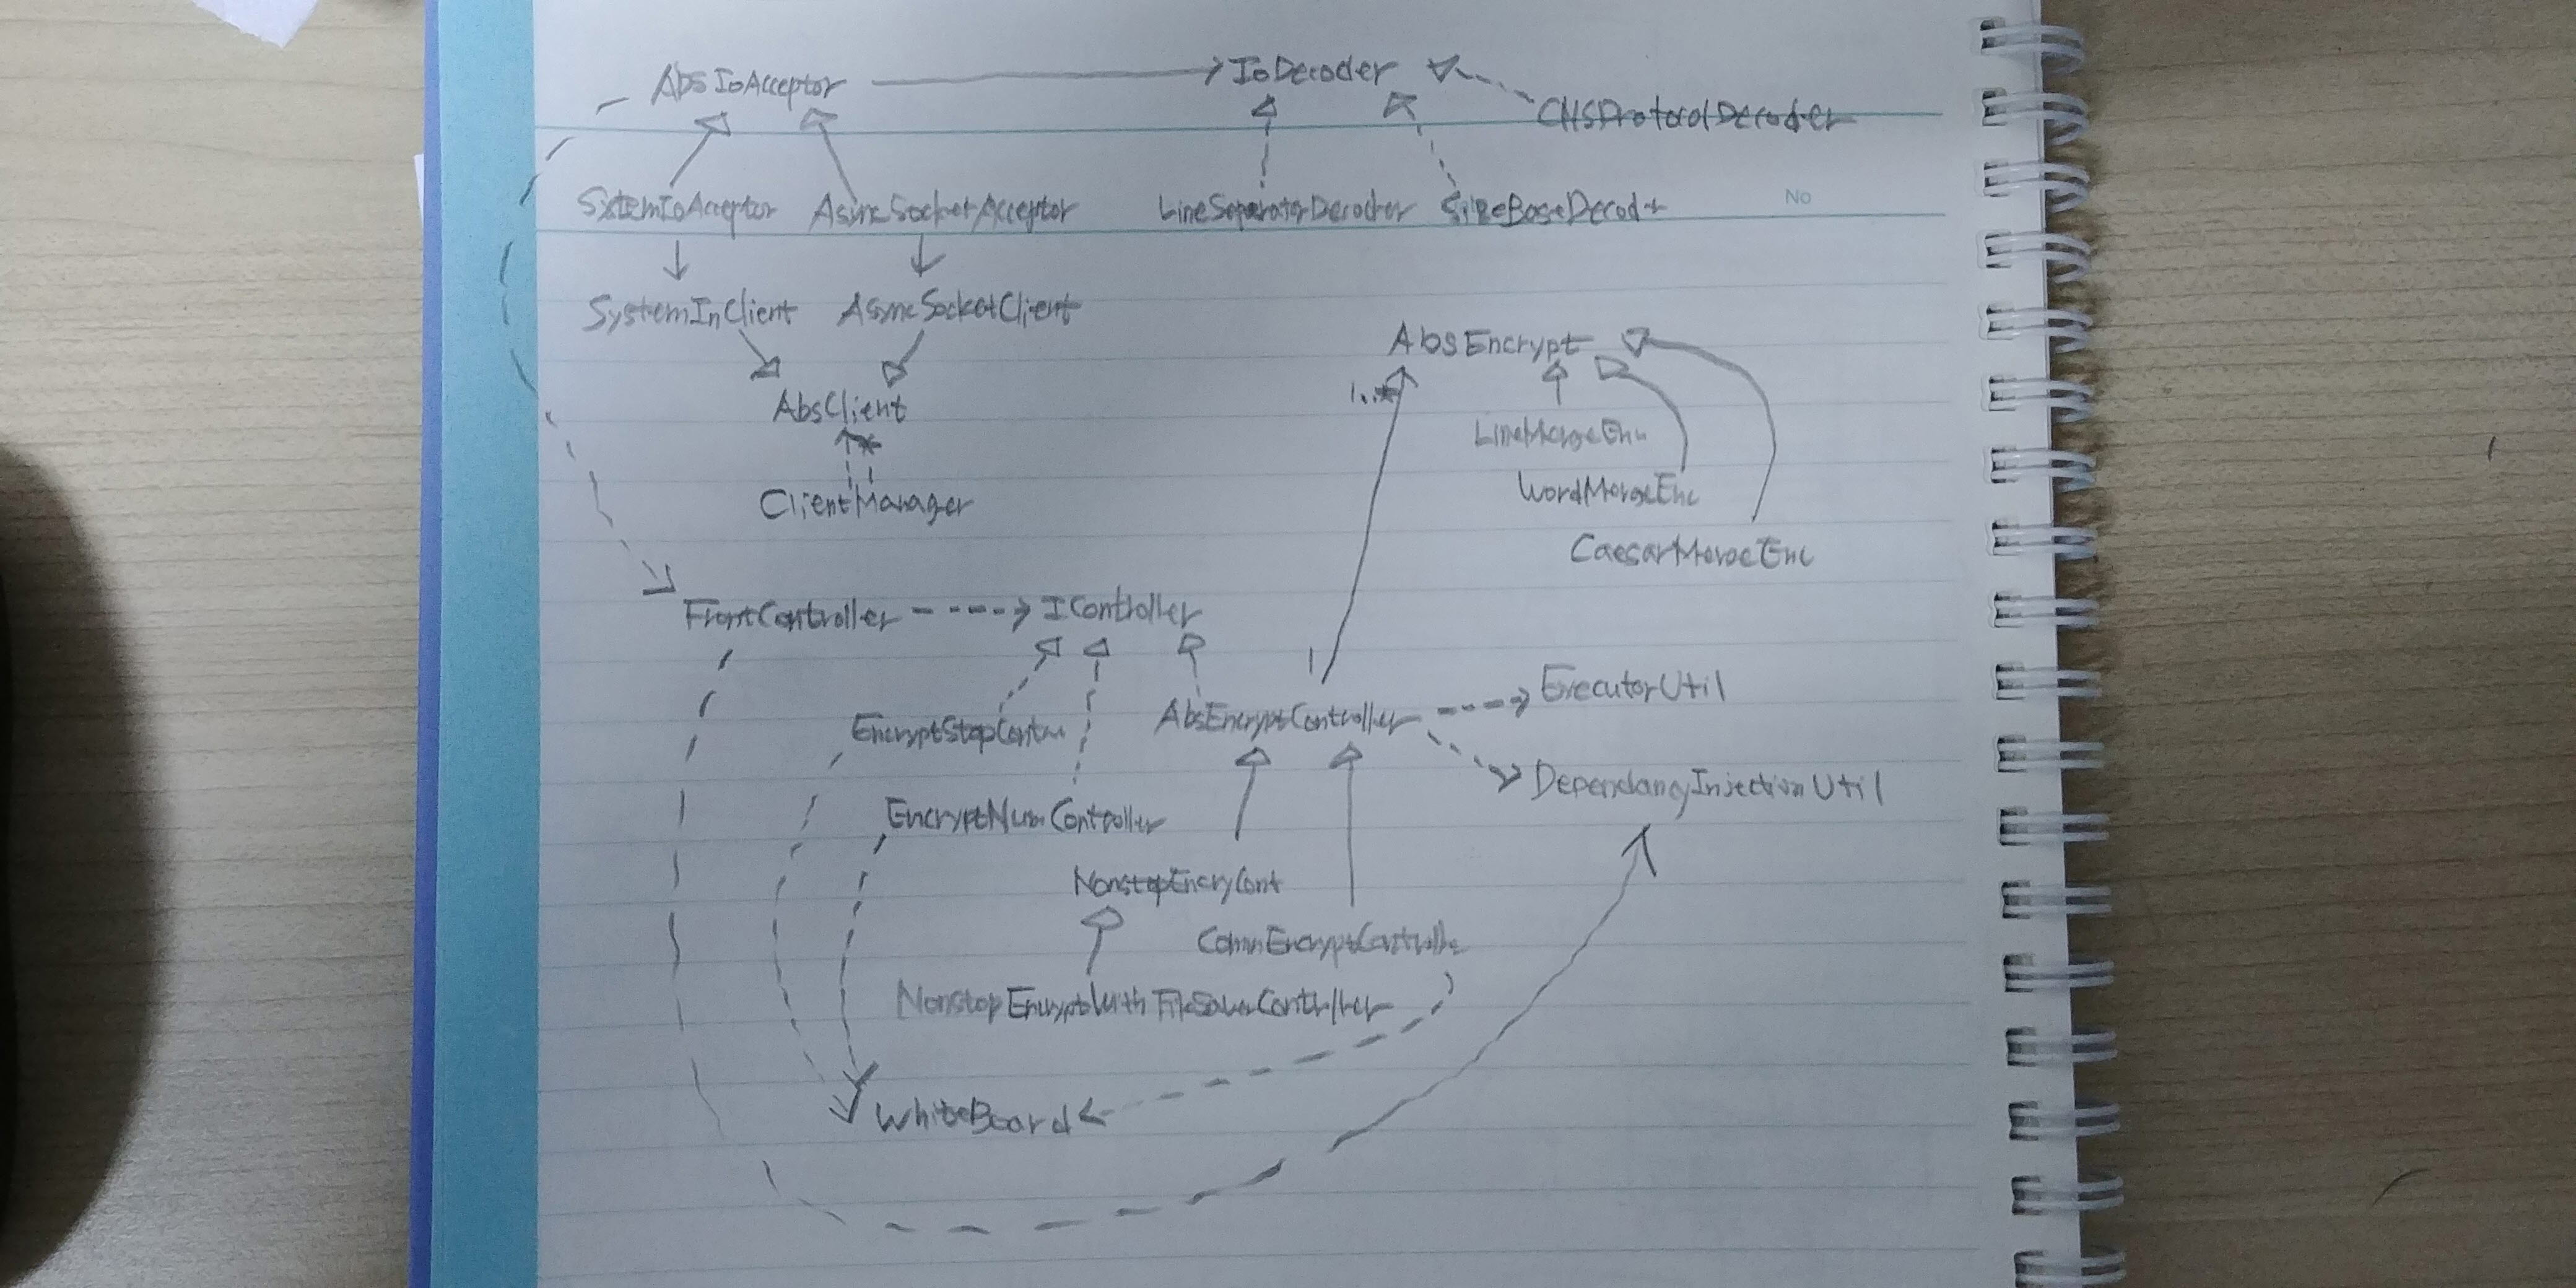 AbsIoAcceptor IoDecoder
CHSProtocolDecoder
SystemIoAcceptor AsyncSocketAcceptor LineSeparatorDecoder SizeBaseDecod No
SystemInClient AsyncSocketClient
AbsEncrypt
1..*
AbsClient
*
LineMergeEnc
WordMergeEnc
ClientManager
CaesarMergeEnc
FrontController IController
1
ExecutorUtil
EncryptStopContr AbsEncryptController
DependancyInjectionUtil
EncryptNumController
NonstopEncryCont
CommEncryptControlle
NonstopEncryptWithFileSaverController
WhiteBoard